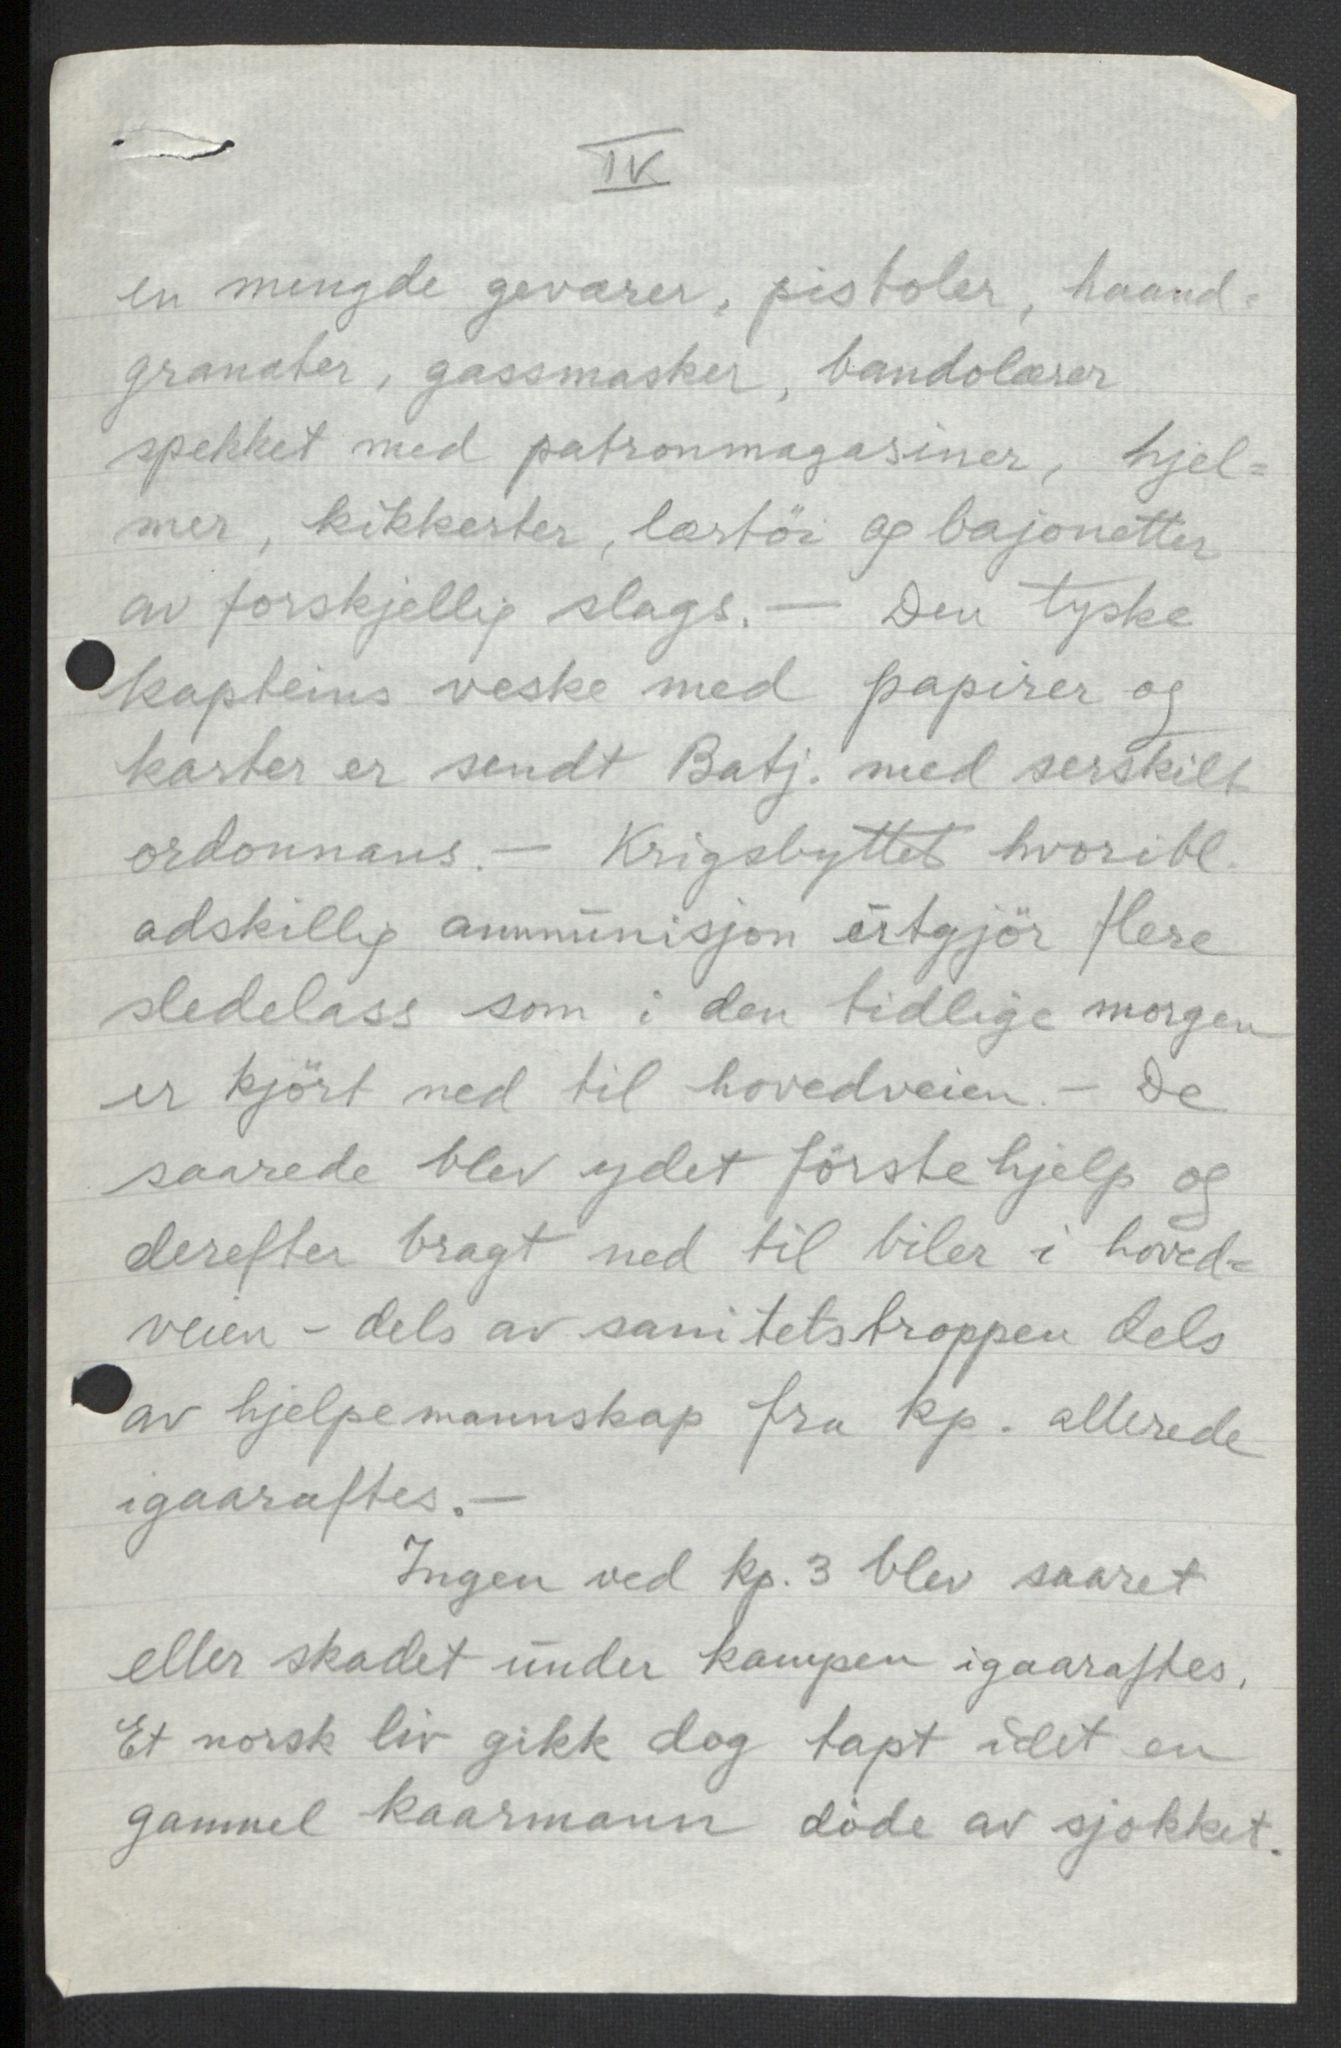 IV
en mengde geværer, pistoler, haand=
granater, gassmasker, bandolærer
spekket med patronmagasiner, hjel=
mer, kikkerter, lærtöi og bajonetter
av forskjellig slags. — Den tyske
kapteins veske med papirer og
karter er sendt Batj. med serskilt
ordonnans. — Krigsbyttet hvoribl.
adskillig ammunisjon utgjör flere
sledelass som i den tidlige morgen
er kjört ned til hovedveien. — De
saarede blev ydet förstehjelp og
derefter bragt ned til biler i hoved=
veien - dels av sanitetstroppen dels
av hjelpemannskap fra kp. allerede
igaaraftes. —
Ingen ved kp. 3 blev saaret
eller skadet under kampen igaaraftes.
Et norsk liv gikk dog tapt idet en
gammel kaarmann döde av sjokket.